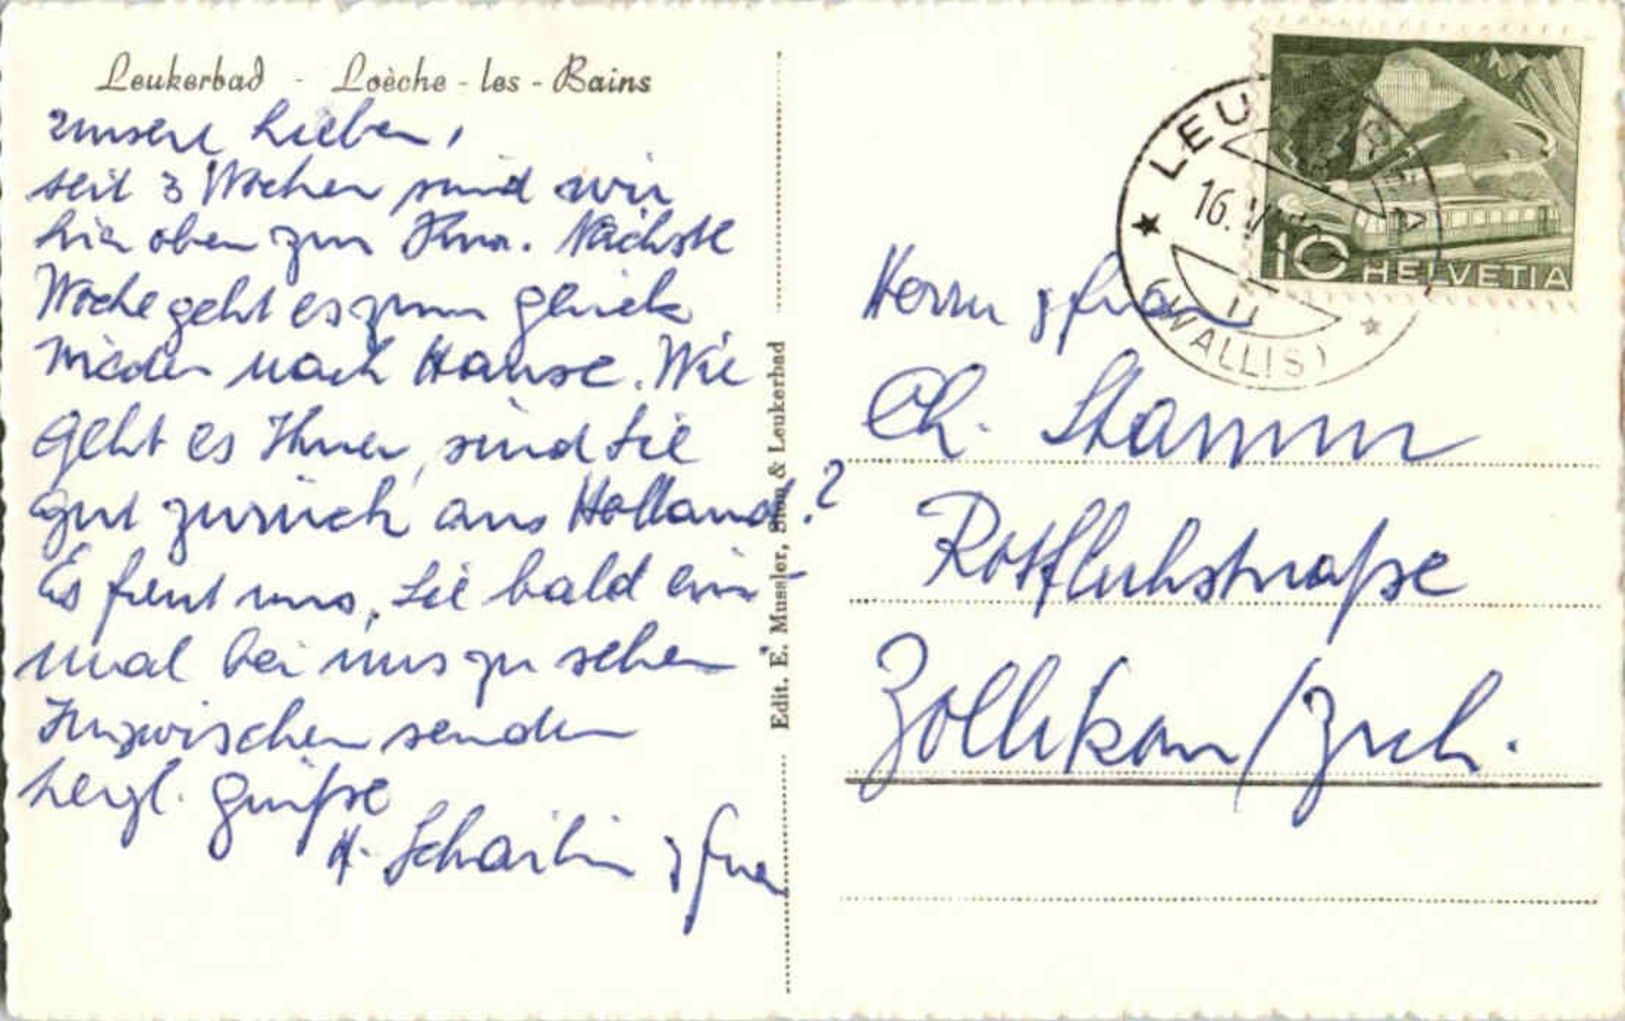 Leukerbad - Loèche-les-Bains
unsere Lieben,
seit 3 Wochen sind wir
hier oben zur Kur. Nächste
Woche geht es zum Glück
wieder nach Hause. Wie
geht es Ihnen, sind Sie
gut zurück aus Holland?
Es freut uns, Sie bald ein-
mal bei uns zu sehen
Inzwischen senden
herzl. Grüße
H. & Frau
Edit. E. Mussler, Sion & Leukerbad
HELVETIA
10
LEUKERBAD
16.
11
(WALLIS)
Herrn & Frau
Ch. Stamm
Rotfluhstraße
Zollikon/Zrch.